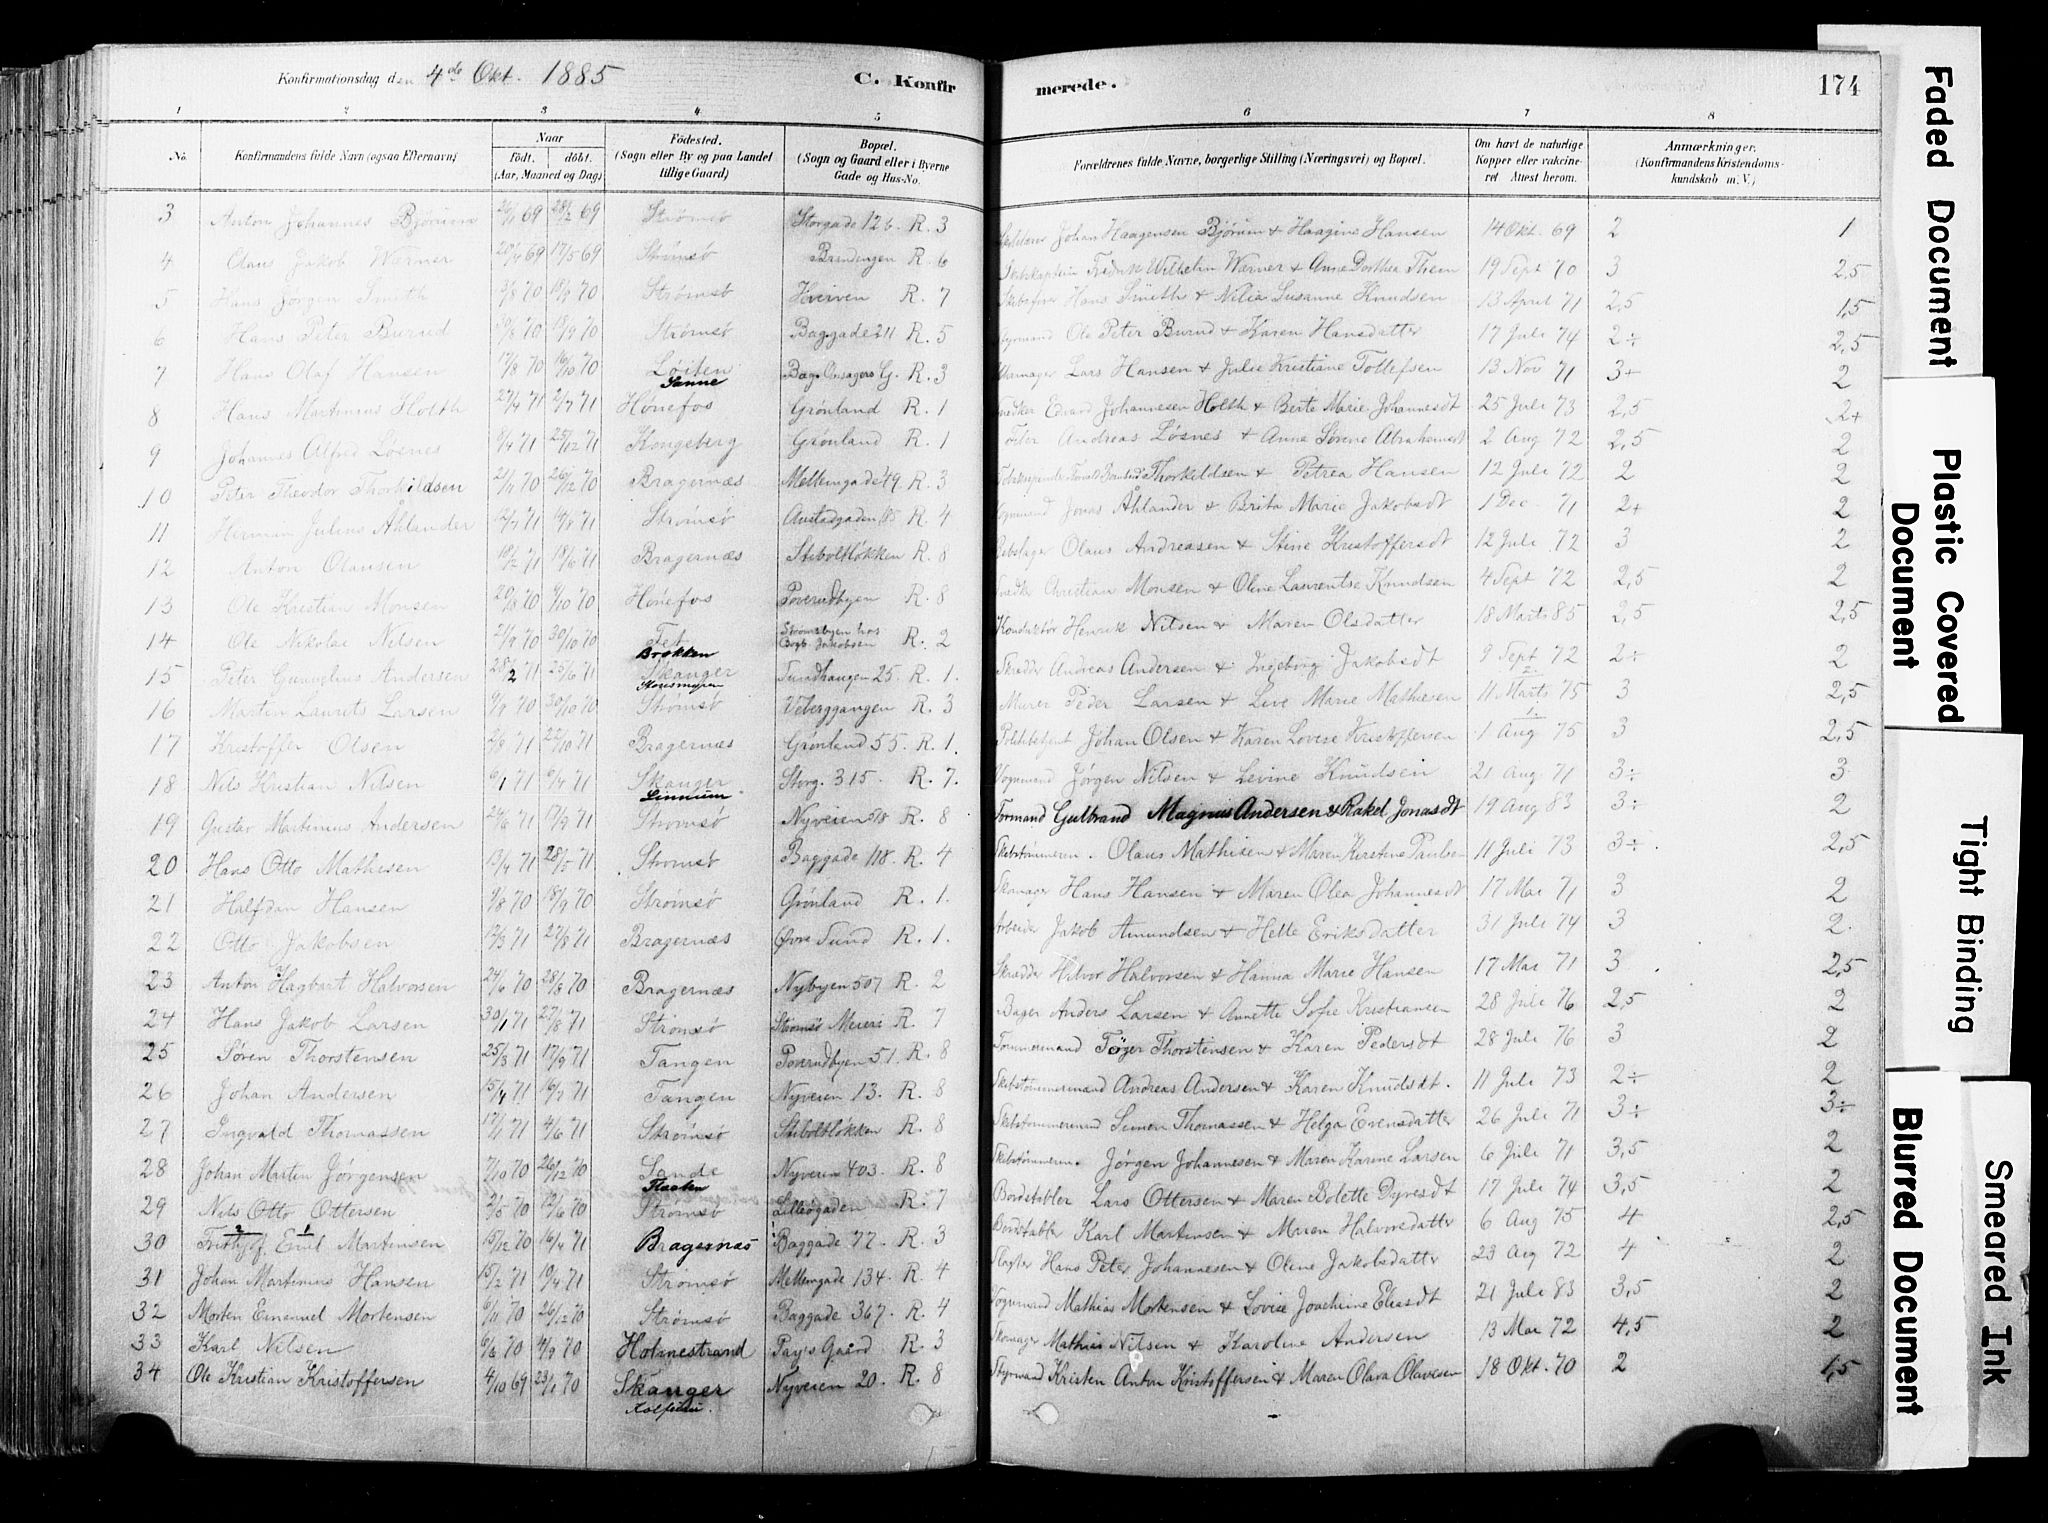 Konfirmationsdag den 4de Okt. 1885
C. Konfirmerede.
174
1 2 3 4 5 6 7 8
No. Konfirmandens fulde Navn (ogsaa Efternavn) Naar Födt. döbt. (Aar, Maaned og Dag) Födested. (Sogn eller By og paa Landet tillige Gaard) Bopæl. (Sogn og Gaard eller i Byerne Gade og Hus-No. Forældrenes fulde Navne, borgerlige Stilling (Næringsvei) og Bopæl. Om havt de naturlige Kopper eller vaccineret Attest herom. Anmærkninger, (Konfirmandens Kristendomskundskab m. V.)
3 Anton Johannes Bjørum 28/2 69 Strømsø Storgade 126. R. 3 Johan Haagensen Bjørum & Haagine Hansen 14 Okt. 69 2 1
4 Olaus Jakob Wærner 20/4 69 17/5 69 Strømsø Brandengen R. 6 Fredrik Wilhelm Wærner & Anne Dorthea Them 19 Sept 70 3 2,5
5 Hans Jørgen Smith 3/8 70 18/9 70 Strømsø Kveiven R. 7 Skibsfører Hans Smith & Nilia Susanne Knudsen 13 April 71 2,5 1,5
6 Hans Peter Burud 18/9 70 Strømsø Baggade 211 R. 5 Styrmand Ole Peter Burud & Karen Hansdatter 17 Juli 74 2÷ 2,5
7 Hans Olaf Hansen 17/8 70 16/10 70 Løiten Sanne R. 3 Lars Hansen & Julie Kristiane Tollefsen 13 Nov 71 3+ 2
8 Hans Martinius Holth 27/4 71 2/7 71 Hønefos Grønland R. 1 Snedker Edvard Johannesen Holth & Berte Marie Johannesdt 25 Juli 73 2,5 2+
9 Johannes Alfred Løsnes 8/4 71 25/12 71 Kongsberg Grønland R. 1 Andreas Løsnes & Anne Sønne Abrahamsdt 2 Aug 72 2,5 2
10 Peter Theodor Thorkildsen 26/12 70 Bragernæs Mellemgade 49. R. 3 Thorkildsen & Petrea Hansen 12 Juli 72 2 2
11 Herman Julius Åhlander 12/7 71 14/8 71 Strømsø Austadgaden R. 4 Vognmand Jonas Åhlander & Brita Marie Jakobsdt 1 Dec. 71 2+ 2
12 Anton Olausen 18/2 71 18/6 71 Bragernæs Stiboltløkken R. 8 Rebslager Olaus Andreasen & Stine Kristoffersdt 12 Juli 72 3 2
13 Ole Kristian Monsen 20/8 70 9/10 70 Hønefos Poverudbyen R. 8 Snedker Christian Monsen & Oline Laurentse Knudsen 4 Sept 72 2,5 2
14 Ole Nikolai Nilsen 21/9 70 30/10 70 Fet Brokken Strømsbyen hos Jakobsen R. 2 Konduktør Henrik Nilsen & Maren Olsdatter 18 Marts 85 2,5 2,5
15 Peter Gunnelius Andersen 28/2 71 25/6 71 Skanger Tunadhaugen 25. R. 1. Skrædder Andreas Andersen & Ingeborg Jakobsdt 9 Sept 72 2÷ 2
16 Marten Laurits Larsen 9/9 70 30/10 70 Strømsø Veberggangen R. 3 Murer Peder Larsen & Live Marie Mathiesen 11 Marts 75 3 2,5
17 Kristoffer Olsen 2/8 71 22/10 71 Bragernæs Grønland 55. R. 1. Politibetjent Johan Olsen & Karen Lovise Kristoffersen 1 Aug 75 3 2,5
18 Nils Kristian Nilsen 6/1 71 9/4 71 Skanger Linnum Storg. 315. R. 7. Vognmand Jørgen Nilsen & Levine Knudsen 21 Aug 71 3÷ 3
19 Gustav Martinius Andersen 24/6 71 17/9 71 Strømsø Nyveien R. 8 Formand Gulbrand Magnus Andersen & Rakel Jonasdt 19 Aug 83 3÷ 2
20 Hans Otto Mathisen 13/4 71 28/5 71 Strømsø Baggade 118. R. 4 Skibstømmerm. Olaus Mathisen & Maren Kirstine Paulsen 11 Juli 73 3÷ 2,5
21 Halfdan Hansen 9/8 70 18/9 70 Strømsø Grønland R. 1. Skomager Hans Hansen & Maren Olea Johannesdt 17 Mai 71 3 2
22 Otto Jakobsen 12/3 71 27/8 71 Bragernæs Øvre Sund R. 1. Arbeider Jakob Amundsen & Helle Eriksdatter 31 Juli 74 3 2.
23 Anton Hagbart Halvorsen 24/6 70 28/8 70 Bragernæs Nybyen 507 R. 2 Skrædder Halvor Halvorsen & Hanna Marie Hansen 17 Mai 71 3 2,5
24 Hans Jakob Larsen 30/1 71 27/8 71 Strømsø Strømsø Meieri R. 7 Bager Anders Larsen & Annette Sofie Kristiansen 28 Juli 76 2,5 2
25 Søren Thorstensen 25/3 71 17/9 71 Tangen Poverudbyen 51. R. 8 Tømmermand Tøger Thorstensen & Karen Pedersdt 28 Juli 76 3 2
26 Johan Andersen 15/4 71 16/7 71 Tangen Nyveien 13. R. 8 Skibstømmermand Andreas Andersen & Karen Knudsdt. 11 Juli 73 2÷ 2
27 Ingvald Thomassen 17/1 71 4/6 71 Strømsø Stiboltløkken R. 8 Skibstømmermand Simon Thomassen & Helga Evensdatter 26 Juli 71 3÷ 3÷
28 Johan Marten Jørgensen 7/10 70 26/12 70 Sande Flasken Nyveien 403. R. 8 Skibstømmerm. Jørgen Johannesen & Maren Karine Larsen 6 Juli 71 3,5 2
29 Nils Otto Ottersen 2/5 70 12/6 70 Strømsø Lilleøgaden R. 7 Bordstabler Lars Ottersen & Maren Bolette Dyresdt 17 Juli 74 3,5 2
30 Frithjof Emil Martinsen 15/12 70 16/4 71 Bragernæs Baggade 77. R. 3 Bordstabler Karl Martinsen & Maren Halvorsdatter 6 Aug 75 4 2,5
31 Johan Martinius Hansen 15/2 71 19/4 71 Strømsø Mellemgade 134. R. 4 Slagter Hans Peter Johannesen & Oline Jakobsdatter 23 Aug 72 4 2
32 Morten Emanuel Mortensen 6/11 70 26/12 70 Strømsø Baggade 367. R. 4 Vognmand Mathias Mortensen & Lovise Joachime Eliasdt 21 Juli 83 3,5 2
33 Karl Nilsen 6/6 70 4/9 70 Holmestrand Pay's Gaard R. 3 Skomager Mathias Nilsen & Karoline Andersen 13 Mai 72 4,5 2
34 Ole Kristian Kristoffersen 4/10 69 23/1 70 Skanger Nyveien 20. R. 8 Styrmand Kristen Anton Kristoffersen & Maren Olava Olavesen 18 Okt. 70 2 1,5
Faded Document
Plastic Covered Document
Tight Binding
Blurred Document
Smeared Ink